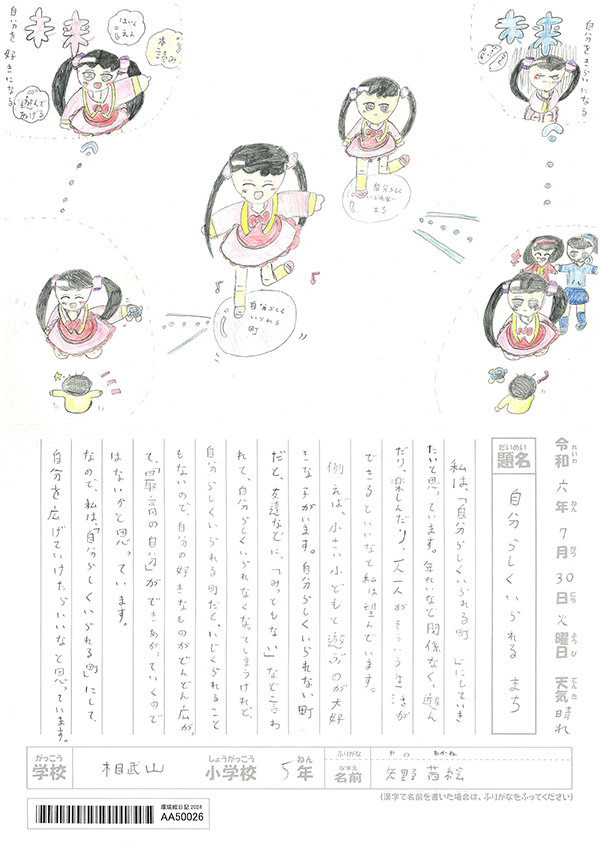 自分を好きになる
未来
ほいくえん
本読み
遊んであげる
未来
自分をきらいになる
自分らしくいられないまち
自分らしくいられる町
令和 六年 7月 30日 火曜日 天気 晴れ
れいわ ねん がつ にち ようび てんき
だいめい
題名
自分らしくいられる まち
私は、「自分らしくいられる町」にしていき
たいと思っています。年れいなど関係なく、遊ん
だり、楽しんだり、一人一人がそういう生活が
できるといいなと私は望んでいます。
例えば、小さい子どもと遊ぶのが大好
きな子がいます。自分らしくいられない町
だと、友達などに、「みっともない」などと言わ
れて、自分らしくいられなくなってしまうけれど、
自分らしくいられる町だと、いじくられること
もないので、自分の好きなものがどんどん広が
て、「最高の自分」ができあがっていくので
はないかと思っています。
なので、私は、「自分らしくいられる町」にして、
自分を広げていけたらいいなと思っています。
がっこう しょうがっこう ねん ふりがな やの あかね
学校 相武山 小学校 5年 なまえ 名前 矢野 茜絵
(漢字で名前を書いた場合は、ふりがなをふってください)
環境絵日記2024
AA50026